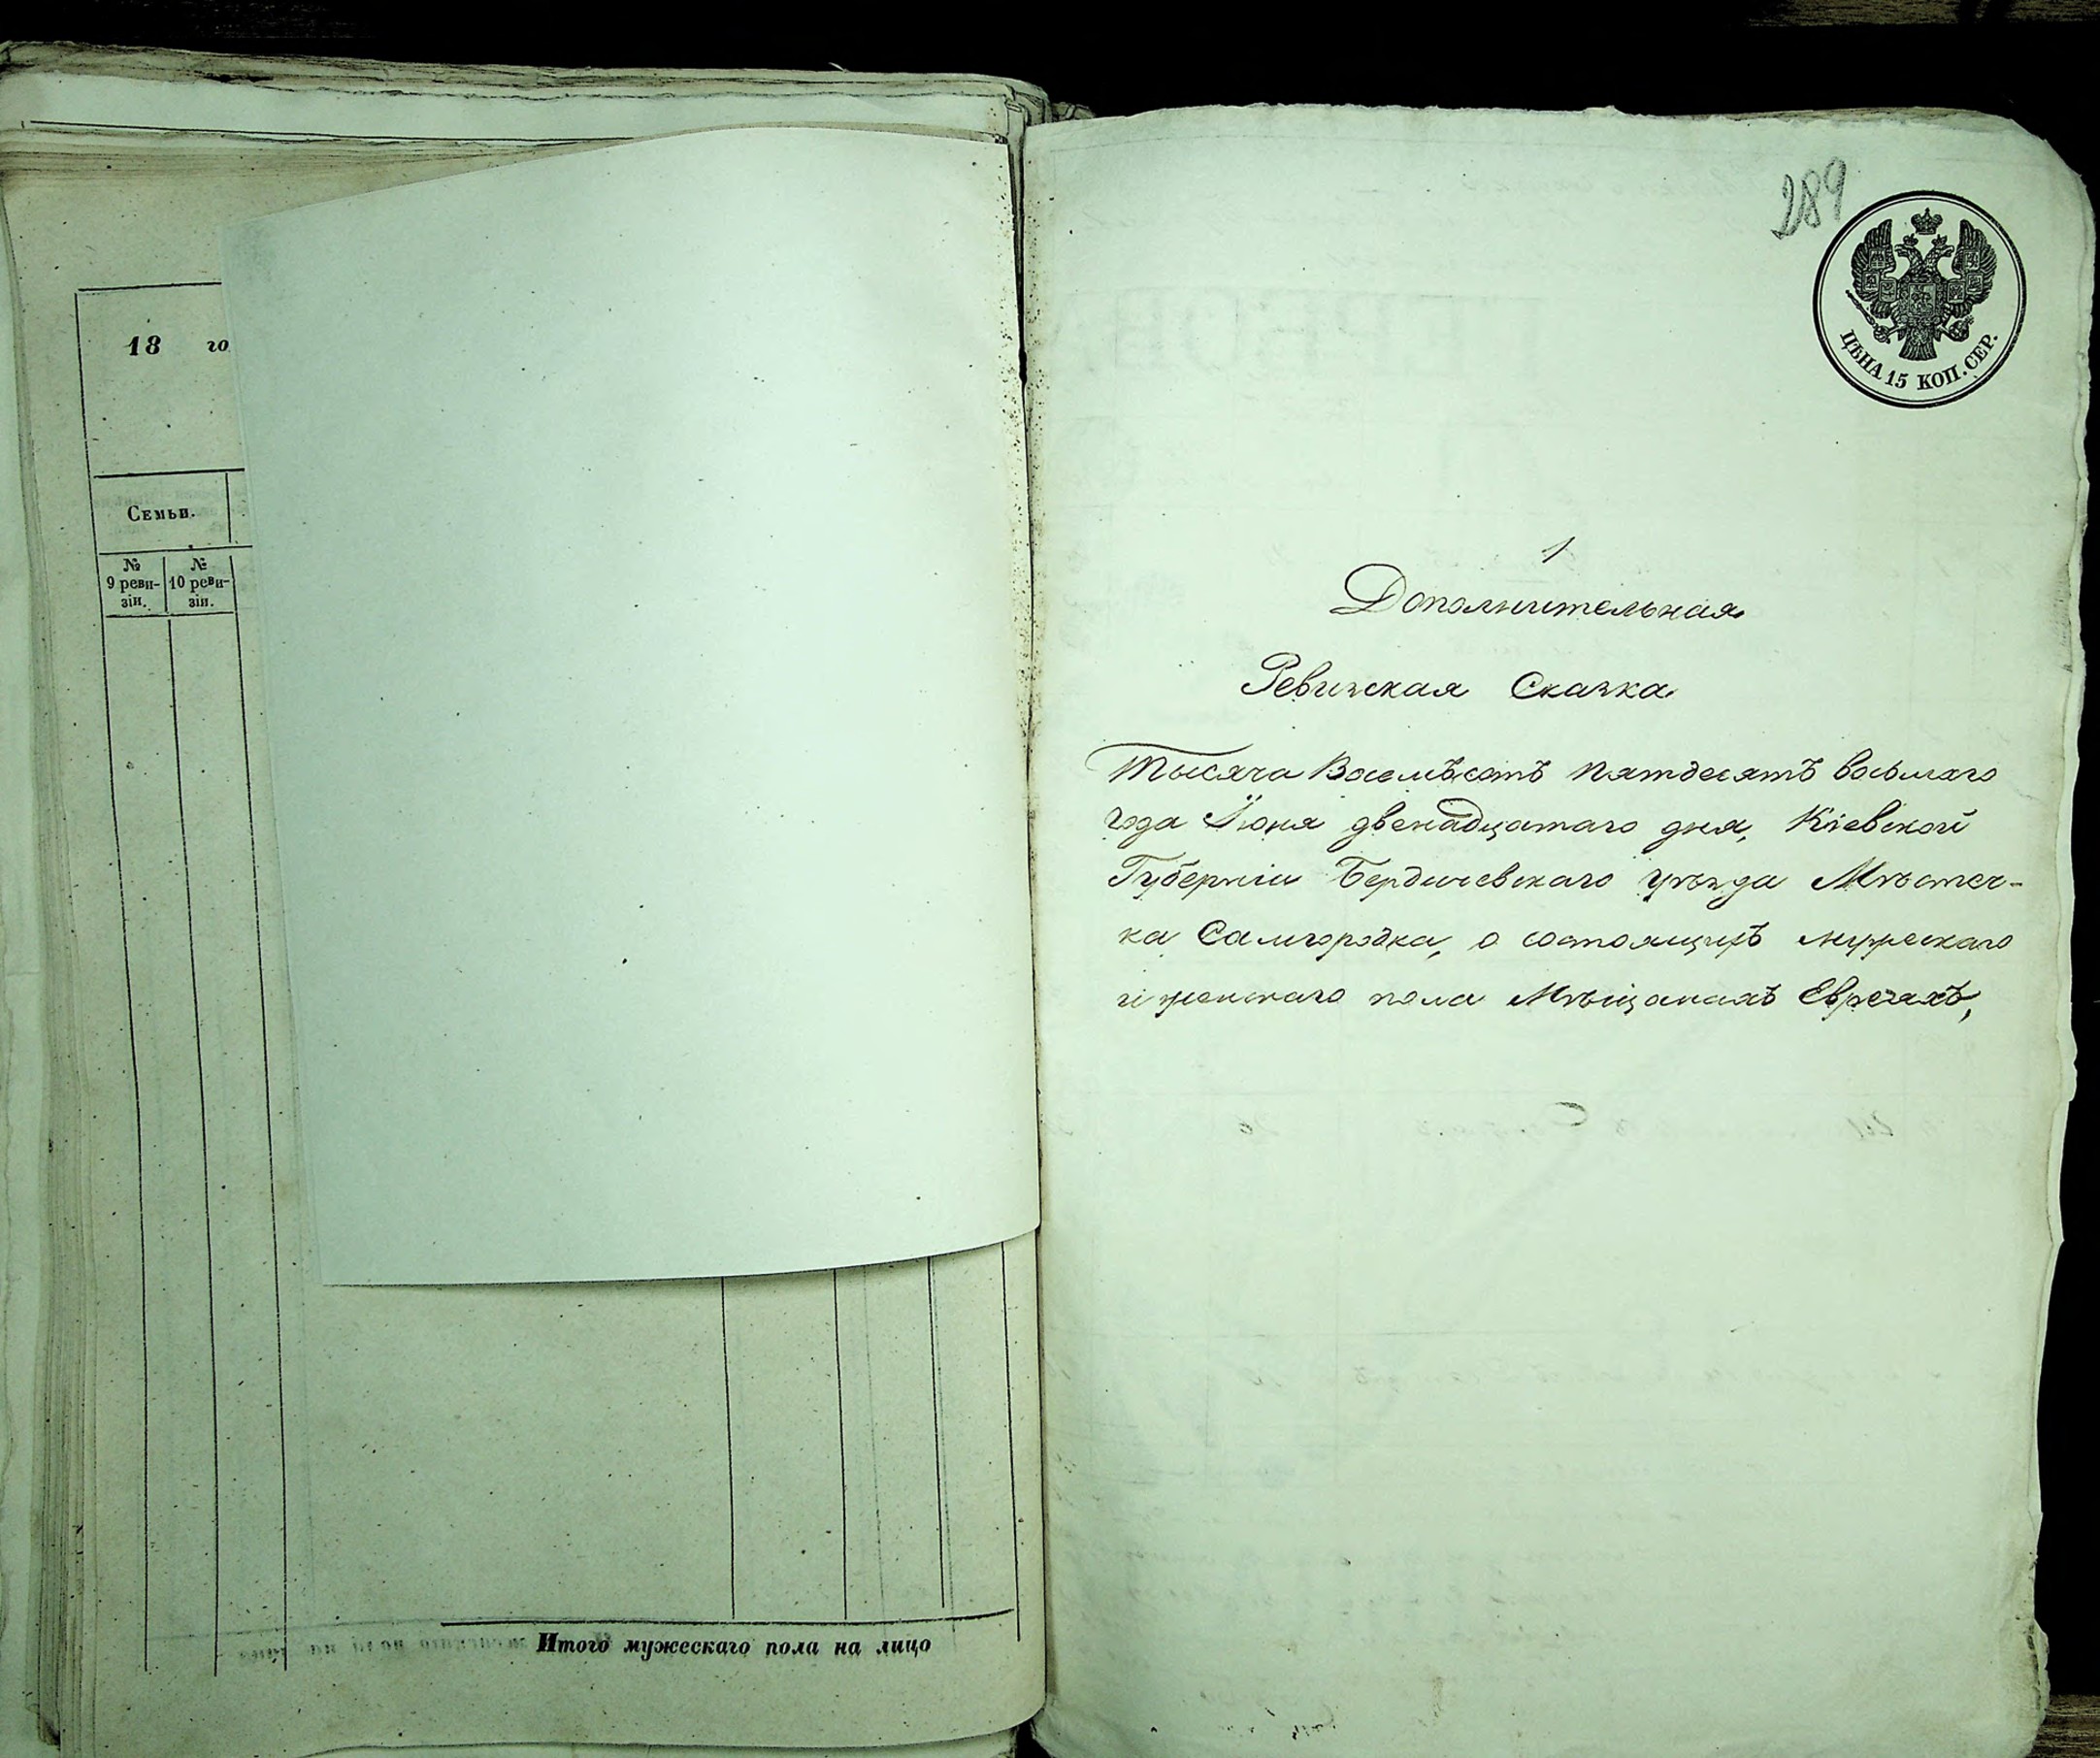 18 го
Семьи.
№ №
9 реви- 10 реви-
зіи. зіи.
Итого мужескаго пола на лицо
289
ЦѢНА 15 КОП. СЕР.
1
Дополнительная
Ревизская Сказка
Тысяча Восемьсотъ пятдесятъ восьмаго
года Іюня двенадцатаго дня, Кіевской
Губерніи Бердичевскаго уѣзда Мѣстеч-
ка Самгородка, о состоящихъ мужескаго
и женскаго пола Мѣщанахъ Евреяхъ,